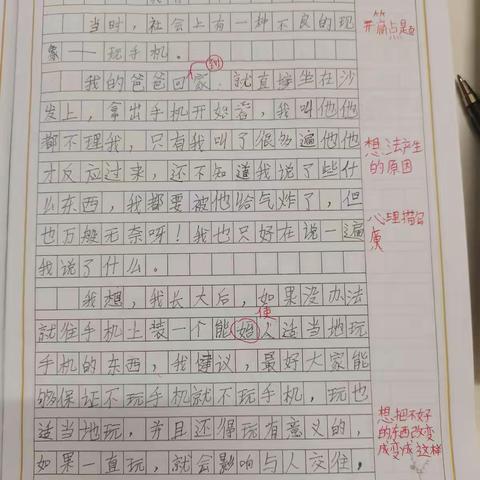 当时,社会上有一种不良的现
象——玩手机。
我的爸爸回家,就直接坐在沙
到
发上,拿出手机开始看,我叫他他
都不理我,只有我叫了很多遍他他
才反应过来,还不知道我说了些什
么东西,我都要被他给气炸了,但
也万般无奈呀!我也只好在说一遍
我说了什么。
我想,我长大后,如果没办法
就往手机上装一个能始人适当地玩
使
手机的东西,我建议,最好大家能
够保证不玩手机就不玩手机,玩也
适当地玩,并且还得玩有意义的,
如果一直玩,就会影响与人交往,
开篇点题
想法产生
的原因
心理描写
想把不好
的东西改变
成变成这样